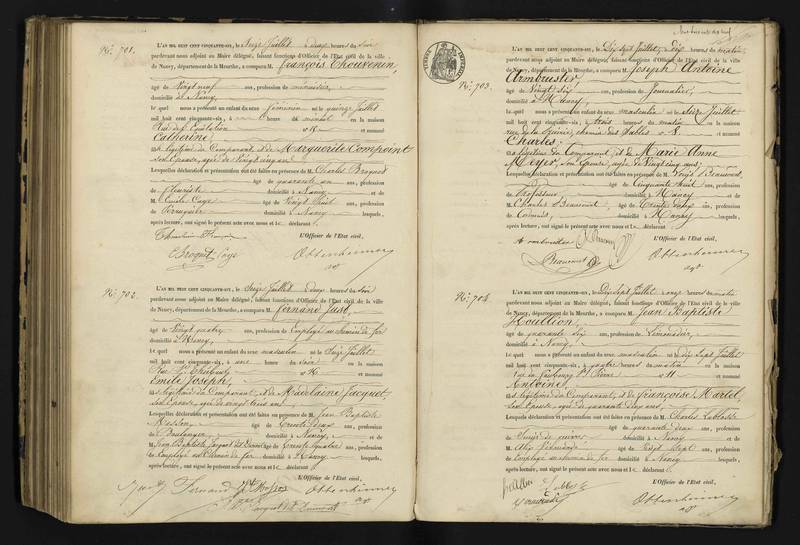 N.° 701.
L'AN MIL HUIT CENT CINQUANTE-SIX, le Seize Juillet à deux heures du soir
pardevant nous adjoint au Maire délégué, faisant fonctions d'Officier de l'Etat civil de la ville
de Nancy, département de la Meurthe, a comparu M. François Thouvenin,
âgé de vingt neuf ans, profession de menuisier,
domicilié à Nancy
lequel nous a présenté un enfant du sexe féminin né le quinze Juillet
mil huit cent cinquante-six, à heure du en la maison
Rue de l'Equitation n° 18 et nommé
Catherine,
légitime du Comparant, et de Marguerite Compoint
son Epouse, âgée de vingt cinq ans
Lesquelles déclaration et présentation ont été faites en présence de M. Charles Broquet
âgé de quarante un ans, profession
de domicilié à Nancy et de
M. Caye âgé de vingt huit ans, profession
de Perruquier domicilié à Nancy lesquels,
après lecture, ont signé le présent acte avec nous et le déclarant
Thouvenin François
L'Officier de l'Etat civil,
Broquet Caye
Ottenheimer
N.° 702.
L'AN MIL HUIT CENT CINQUANTE-SIX, le Seize Juillet à deux heures du soir
pardevant nous adjoint au Maire délégué, faisant fonctions d'Officier de l'Etat civil de la ville
de Nancy, département de la Meurthe, a comparu M. Fernand Just,
âgé de vingt quatre ans, profession de Employé au chemin de fer
domicilié à Nancy,
lequel nous a présenté un enfant du sexe masculin né le Seize Juillet
mil huit cent cinquante-six, à une heure du soir en la maison
Rue St Thiébaut n° 16 et nommé
Emile Joseph,
légitime du Comparant, et de Madelaine Jacquet,
son Epouse, âgée de vingt trois ans
Lesquelles déclaration et présentation ont été faites en présence de M. Jean Baptiste
Messon, âgé de trente deux ans, profession
de Boulanger domicilié à Nancy, et de
M. Jean Baptiste Jacquot dit âgé de trente quatre ans, profession
de Employé au Chemin de fer domicilié à Nancy lesquels,
après lecture, ont signé le présent acte avec nous et le déclarant
L'Officier de l'Etat civil,
Just Fernand
Ottenheimer
N.° 703.
L'AN MIL HUIT CENT CINQUANTE-SIX, le Dix sept Juillet, à dix heures du matin
pardevant nous adjoint au Maire délégué, faisant fonctions d'Officier de l'Etat civil de la ville
de Nancy, département de la Meurthe, a comparu M. Joseph Antoine
Armbruster,
âgé de vingt six ans, profession de Journalier,
domicilié à Nancy
lequel nous a présenté un enfant du sexe masculin né le Seize Juillet
mil huit cent cinquante-six, à trois heures du matin en la maison
rue de la chemin des Sables n° 8 et nommé
Charles,
légitime du Comparant et de Marie Anne
Meyer, son Epouse, âgée de vingt cinq ans,
Lesquelles déclaration et présentation ont été faites en présence de M. Louis Beaucourt,
âgé de Cinquante huit ans, profession
de Professeur domicilié à Nancy et de
M. Charles Beaucourt âgé de trente deux ans, profession
de Commis, domicilié à Nancy lesquels,
après lecture, ont signé le présent acte avec nous et le déclarant
Armbruster
L'Officier de l'Etat civil,
Beaucourt
Ottenheimer
N.° 704.
L'AN MIL HUIT CENT CINQUANTE-SIX, le Dix Sept Juillet, à onze heures du matin
pardevant nous adjoint au Maire délégué, faisant fonctions d'Officier de l'Etat civil de la ville
de Nancy, département de la Meurthe, a comparu M. Jean Baptiste
Houillon,
âgé de quarante six ans, profession de Limonadier,
domicilié à Nancy,
lequel nous a présenté un enfant du sexe masculin né le dix sept Juillet
mil huit cent cinquante-six, à quatre heures du matin en la maison
Rue du faubourg St Pierre n° 11 et nommé
Antoine,
légitime du Comparant, et de Françoise Martel,
son Epouse, âgée de quarante deux ans,
Lesquelles déclaration et présentation ont été faites en présence de M. Charles
âgé de quarante deux ans, profession
de domicilié à Nancy et de
M. âgé de vingt sept ans, profession
de Employé au chemin de fer domicilié à Nancy lesquels,
après lecture, ont signé le présent acte avec nous et le déclarant
L'Officier de l'Etat civil,
Ottenheimer